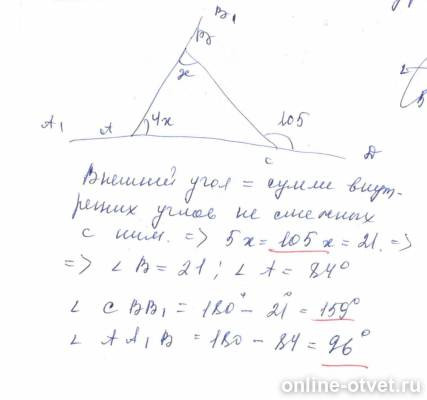 B₁
B
x
A₁
A
4x
105
C
D
Внешний угол = сумме внут-
ренних углов не смежных
с ним. => 5x = 105 x = 21. =>
=> ∠ B = 21 ; ∠ A = 84°
∠ C B B₁ = 180° - 21° = 159°
∠ A A₁ B = 180 - 84 = 96°
online-otvet.ru